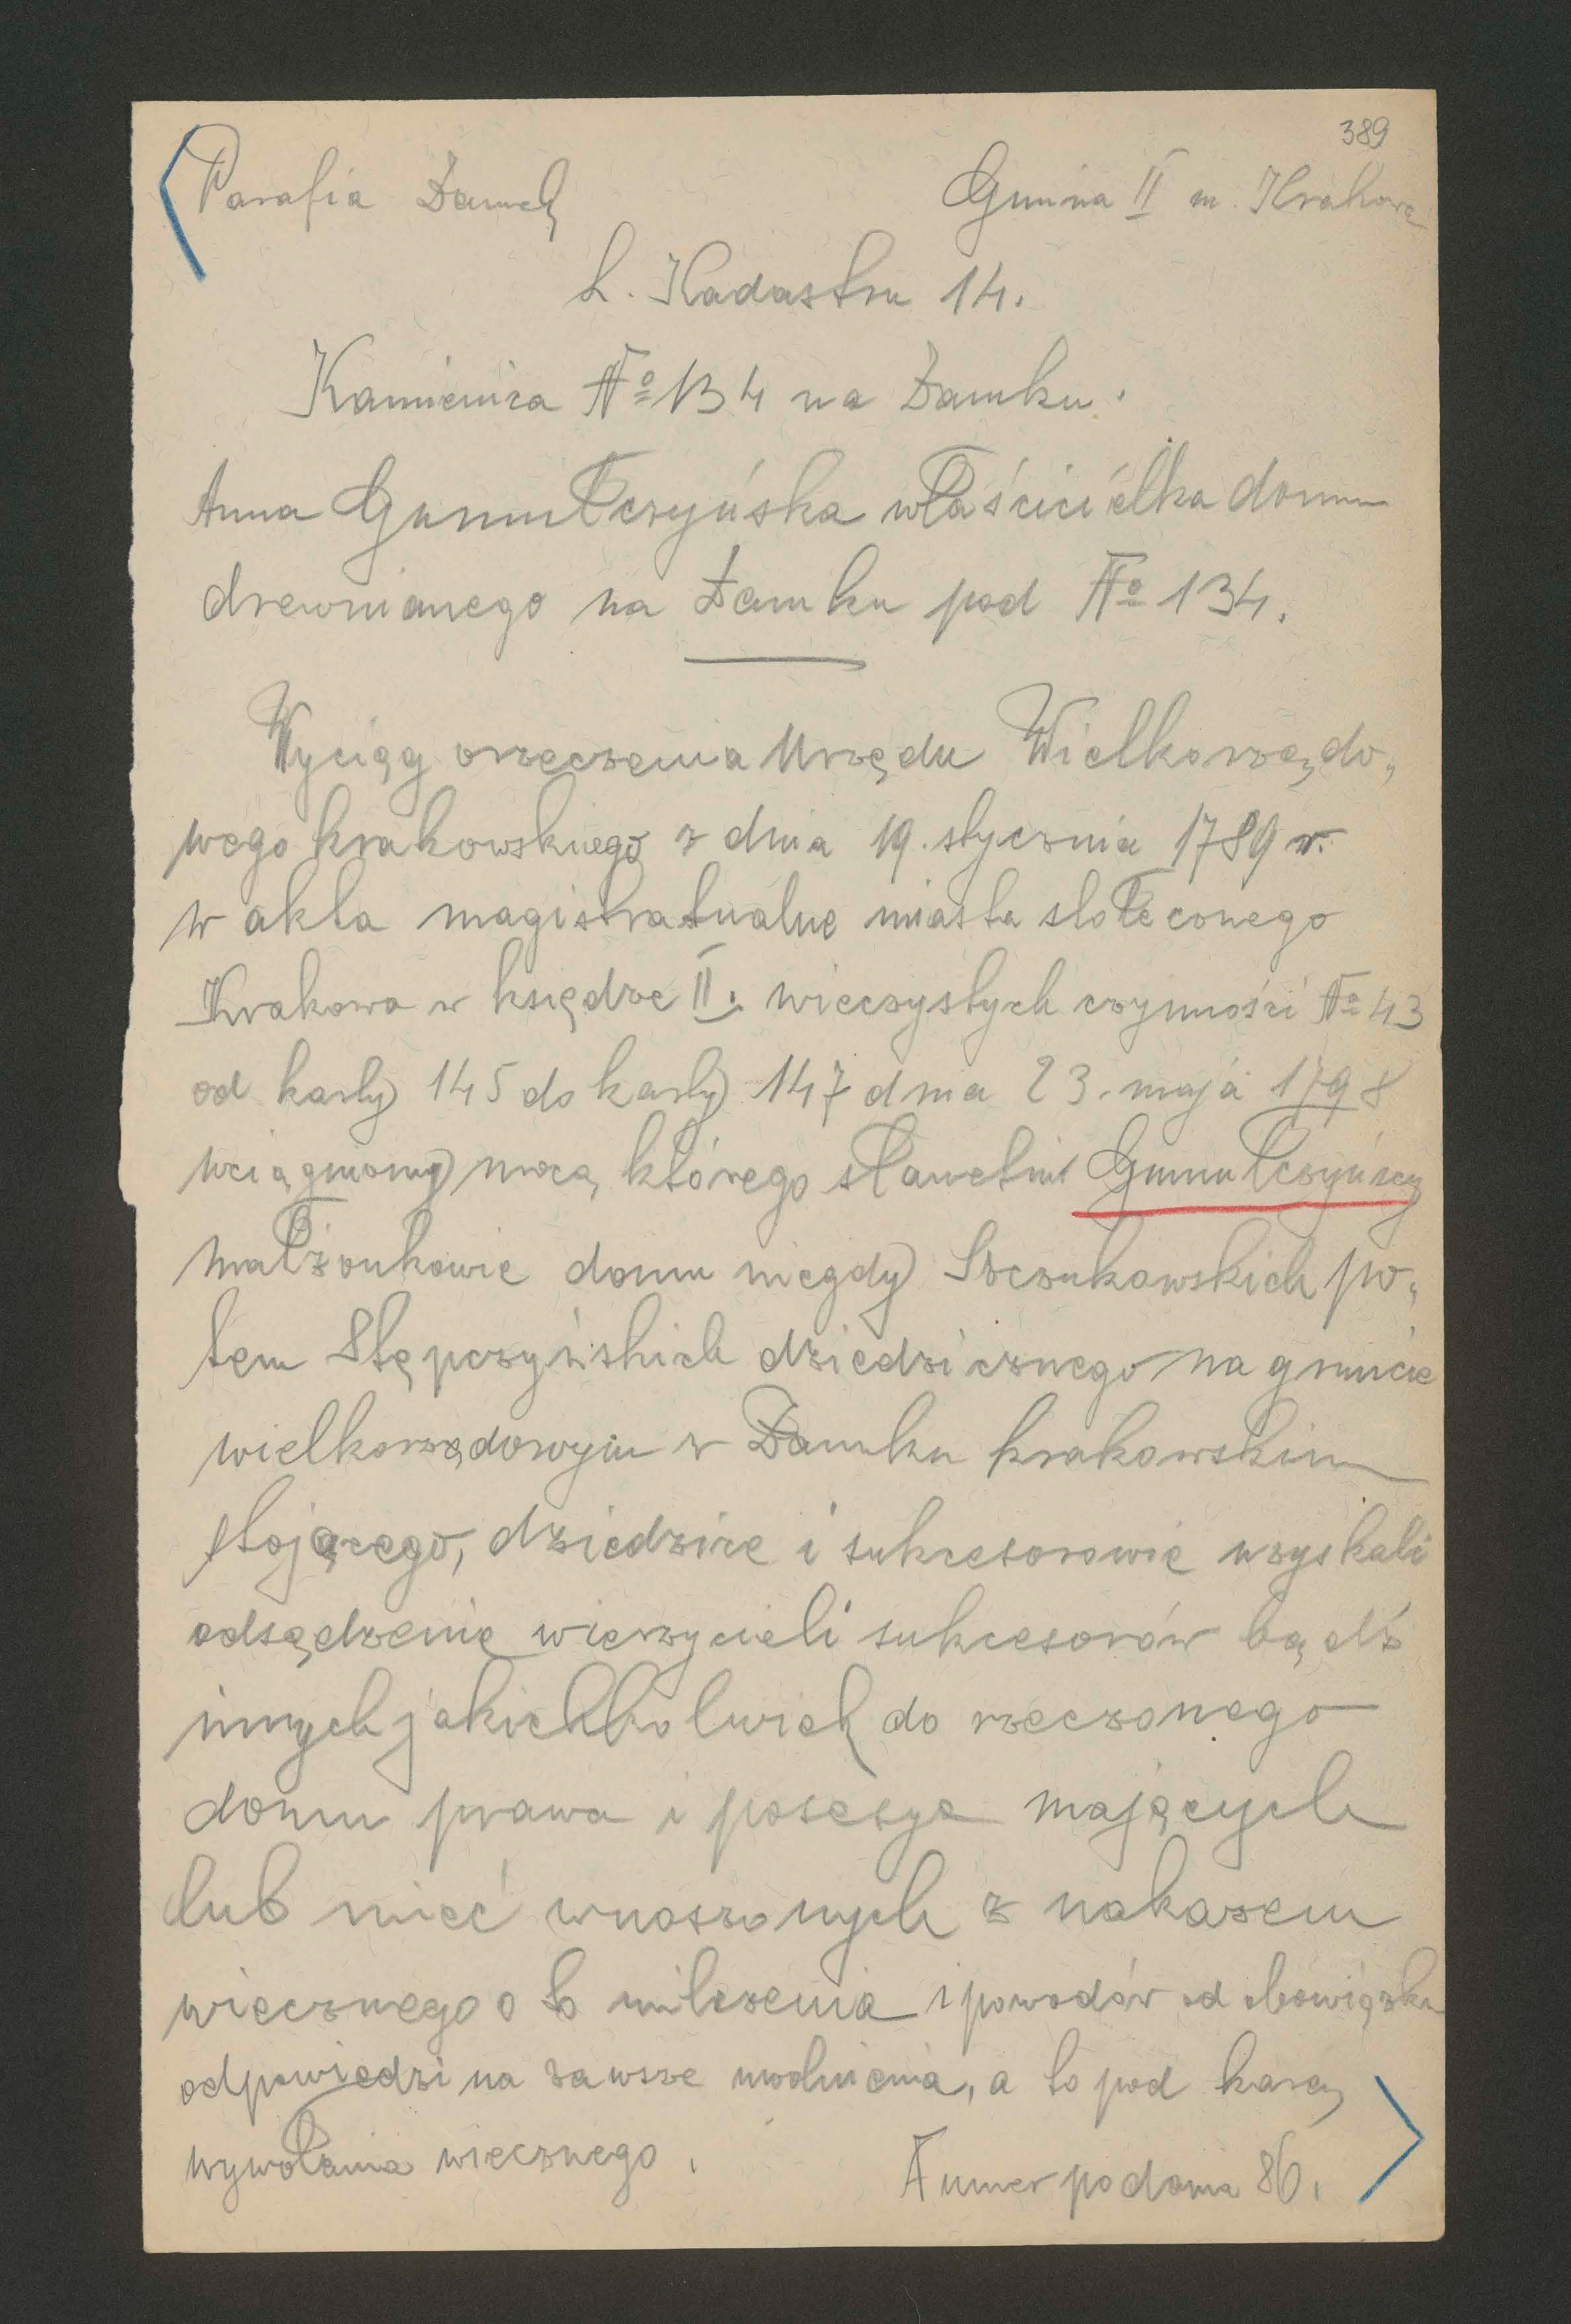 389
Parafia Zamek
Gmina II m. Krakowa
L. Kadastru 14.
Kamienica No 134 na Zamku.
Anna Gumulczyńska właścicielka domu
drewnianego na Zamku pod No 134.
Wyciąg orzeczenia Urzędu Wielkorządo„
wego krakowskiego z dnia 19. stycznia 1789 r.
w akta magistratualne miasta stołecznego
Krakowa w księdze II. wieczystych czynności No 43
od karty 145 do karty 147 dnia 23. maja 1798
wciągniony mocą którego sławetni Gumułczyńscy
małżonkowie domu niegdy Szczukowskich po„
tem Stępczyńskich dziedzicznego na gruncie
wielkorządowym w Zamku krakowskim
stojącego, dziedzice i sukcesorowie uzyskali
odsądzenie wierzycieli sukcesorów bądź
innych jakichkolwiek do rzeczonego
domu prawa i posesye mających
lub mieć wnoszonych z nakazem
wiecznego o to milczenia i powodów od obowiązku
odpowiedzi na zawsze uwolnienia, a to pod karą
wywołania wiecznego.
Numer podania 86.